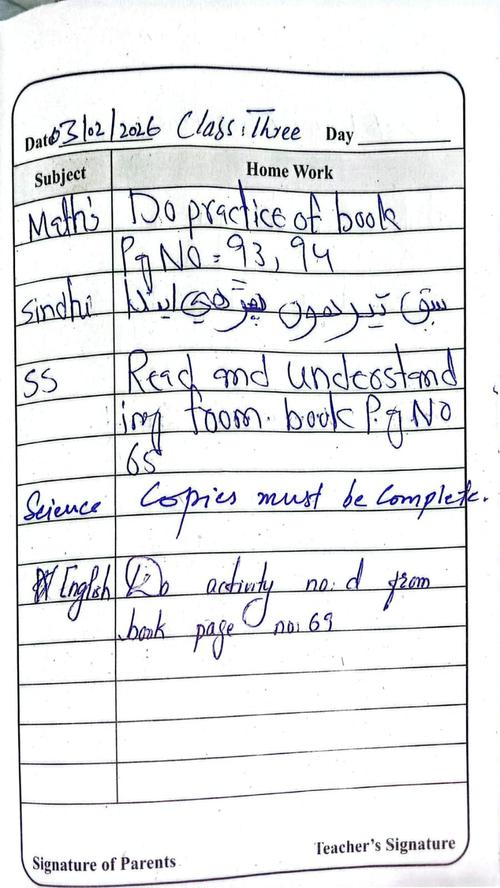 Date 03/02/2026 Class: Three Day
Subject Home Work
Maths Do practice of book
Pg No = 93, 94
Sindhi سبق تيرهون
SS Read and understand
ing from book P.g No
65
Science Copies must be Complete.
English Do activity no: d from
book page no: 69
Signature of Parents Teacher's Signature